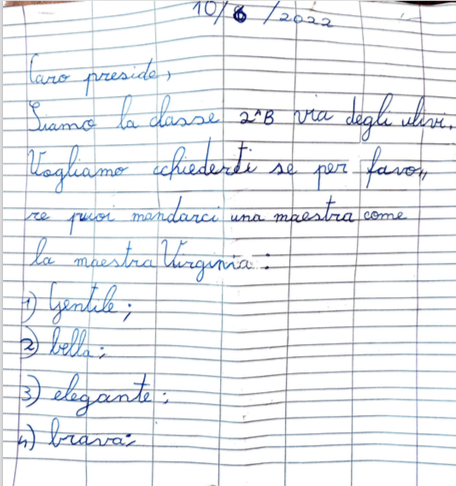 10/6/2022
Caro preside,
Siamo la classe 2^B via degli ulivi.
Vogliamo cchiederti se per favo,,
re puoi mandarci una maestra come
la maestra Virginia:
1) Gentile;
2) bella;
3) elegante;
4) brava;